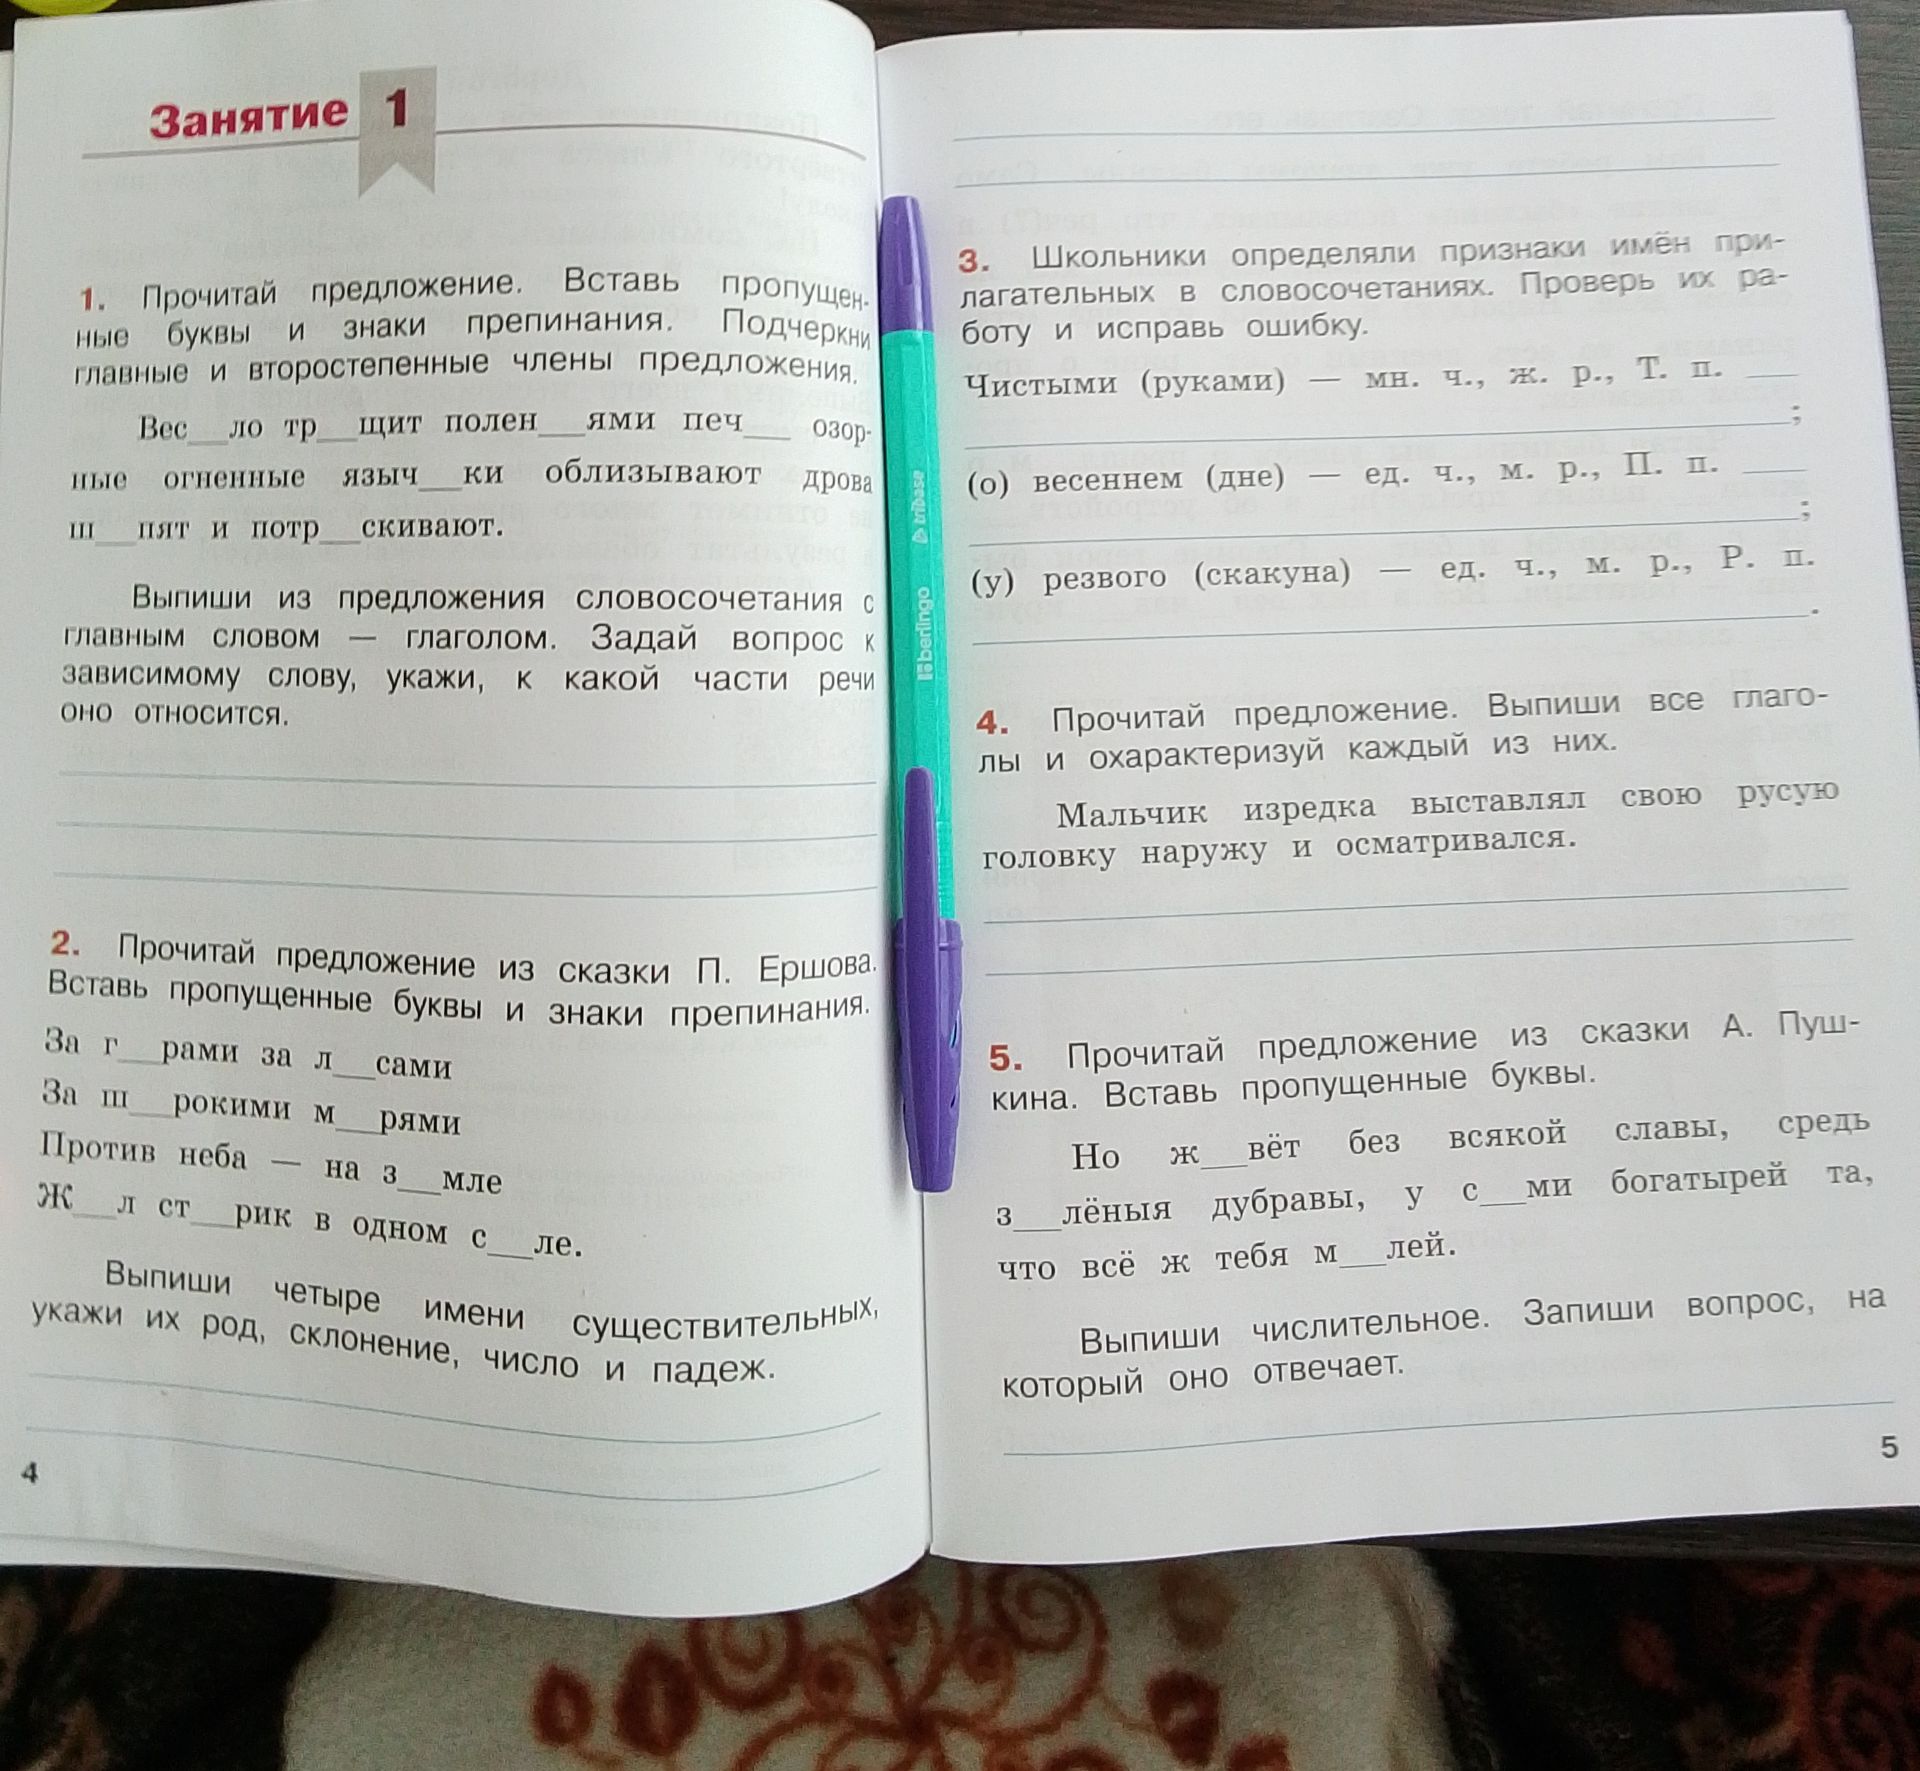 Занятие 1
1. Прочитай предложение. Вставь пропущен-
ные буквы и знаки препинания. Подчеркни
главные и второстепенные члены предложения.
Вес__ло тр__щит полен__ями печ__ озор-
ные огненные языч__ки облизывают дрова
ш__пят и потр__скивают.
Выпиши из предложения словосочетания с
главным словом — глаголом. Задай вопрос к
зависимому слову, укажи, к какой части речи
оно относится.
2. Прочитай предложение из сказки П. Ершова.
Вставь пропущенные буквы и знаки препинания.
За г__рами за л__сами
За ш__рокими м__рями
Против неба — на з__мле
Ж__л ст__рик в одном с__ле.
Выпиши четыре имени существительных,
укажи их род, склонение, число и падеж.
4
berlingo tribase
3. Школьники определяли признаки имён при-
лагательных в словосочетаниях. Проверь их ра-
боту и исправь ошибку.
Чистыми (руками) — мн. ч., ж. р., Т. п. __
;
(о) весеннем (дне) — ед. ч., м. р., П. п. __
;
(у) резвого (скакуна) — ед. ч., м. р., Р. п.
.
4. Прочитай предложение. Выпиши все глаго-
лы и охарактеризуй каждый из них.
Мальчик изредка выставлял свою русую
головку наружу и осматривался.
5. Прочитай предложение из сказки А. Пуш-
кина. Вставь пропущенные буквы.
Но ж__вёт без всякой славы, средь
з__лёныя дубравы, у с__ми богатырей та,
что всё ж тебя м__лей.
Выпиши числительное. Запиши вопрос, на
который оно отвечает.
5